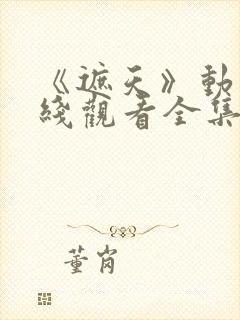 《遮天》動
綫觀看全集
董崗